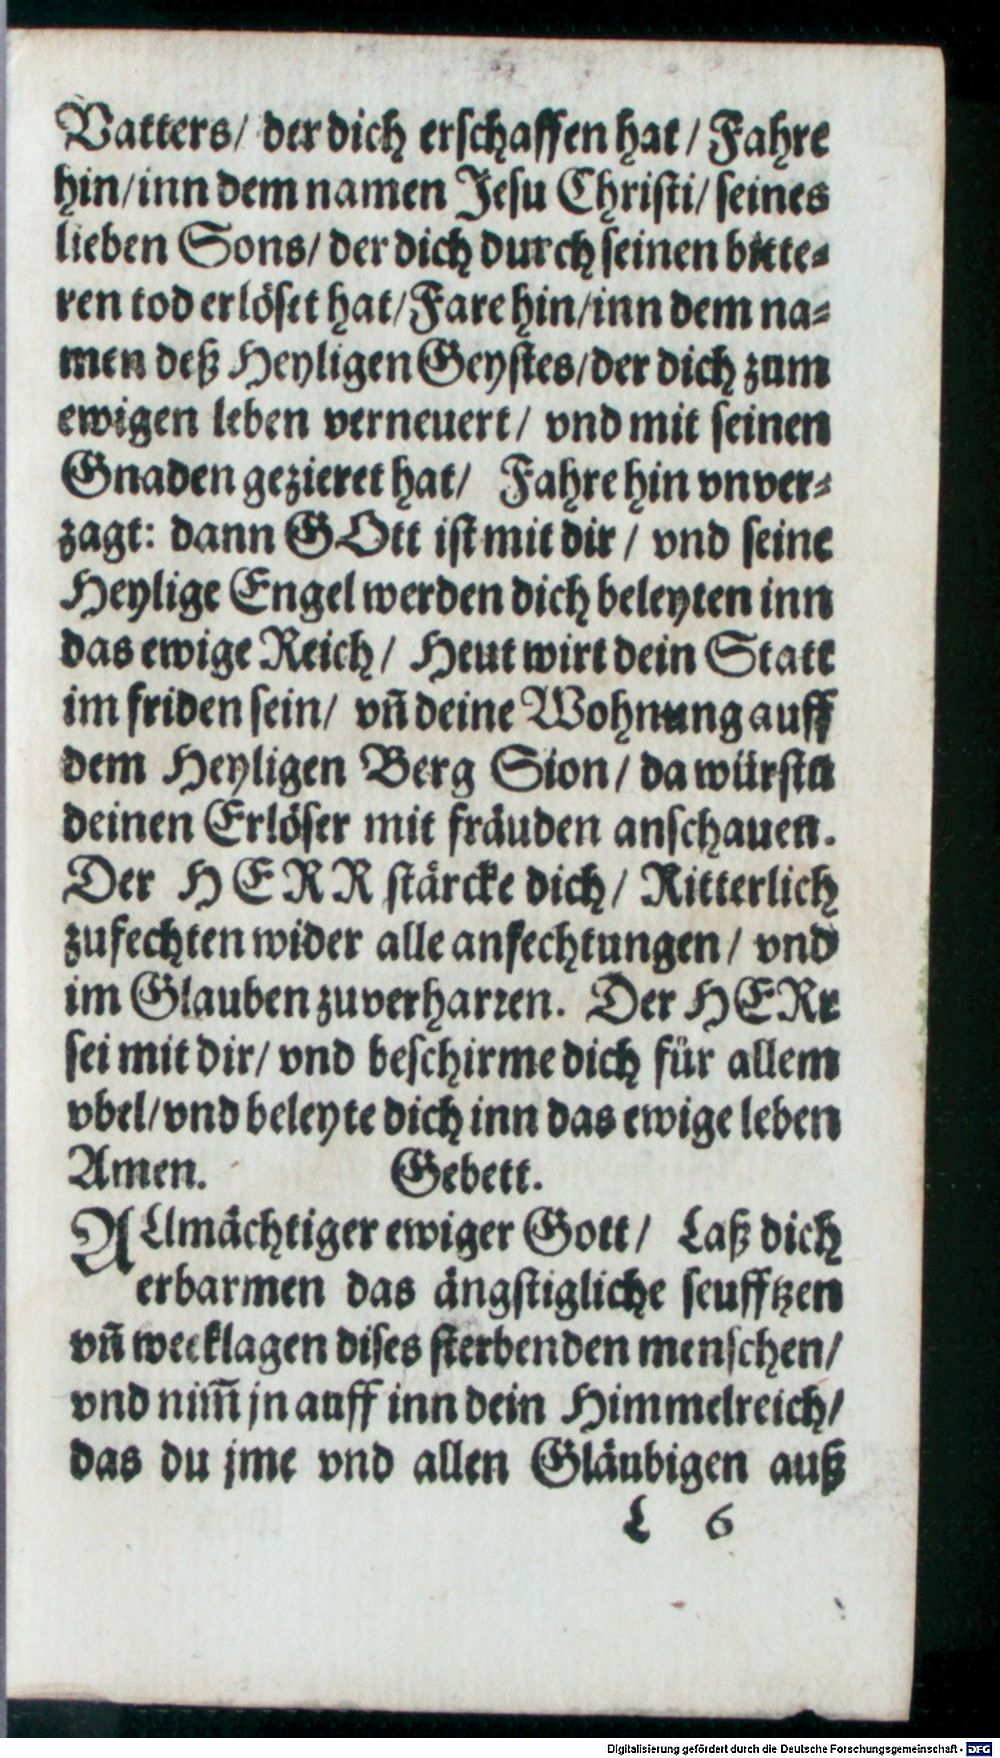 Vatters/ der dich erschaffen hat/ Fahre
hin/ inn dem namen Jesu Christi/ seines
lieben Sons/ der dich durch seinen bitte⸗
ren tod erlöset hat/ Fare hin/ inn dem na⸗
men deß Heyligen Geystes/ der dich zum
ewigen leben verneuert/ vnd mit seinen
Gnaden gezieret hat/ Fahre hin vnver⸗
zagt: dann GOtt ist mit dir/ vnd seine
Heylige Engel werden dich beleyten inn
das ewige Reich/ Heut wirt dein Statt
im friden sein/ vñ deine Wohnung auff
dem Heyligen Berg Sion/ da würstu
deinen Erlöser mit fräuden anschauen.
Der HERR stärcke dich/ Ritterlich
zufechten wider alle anfechtungen/ vnd
im Glauben zuverharren. Der HERr
sei mit dir/ vnd beschirme dich für allem
vbel/ vnd beleyte dich inn das ewige leben
Amen. Gebett.
ALlmächtiger ewiger Gott/ Laß dich
erbarmen das ängstigliche seufftzen
vñ weeklagen dises sterbenden menschen/
vnd nim̃ jn auff inn dein Himmelreich/
das du jme vnd allen Gläubigen auß
L 6
Digitalisierung gefördert durch die Deutsche Forschungsgemeinschaft - DFG